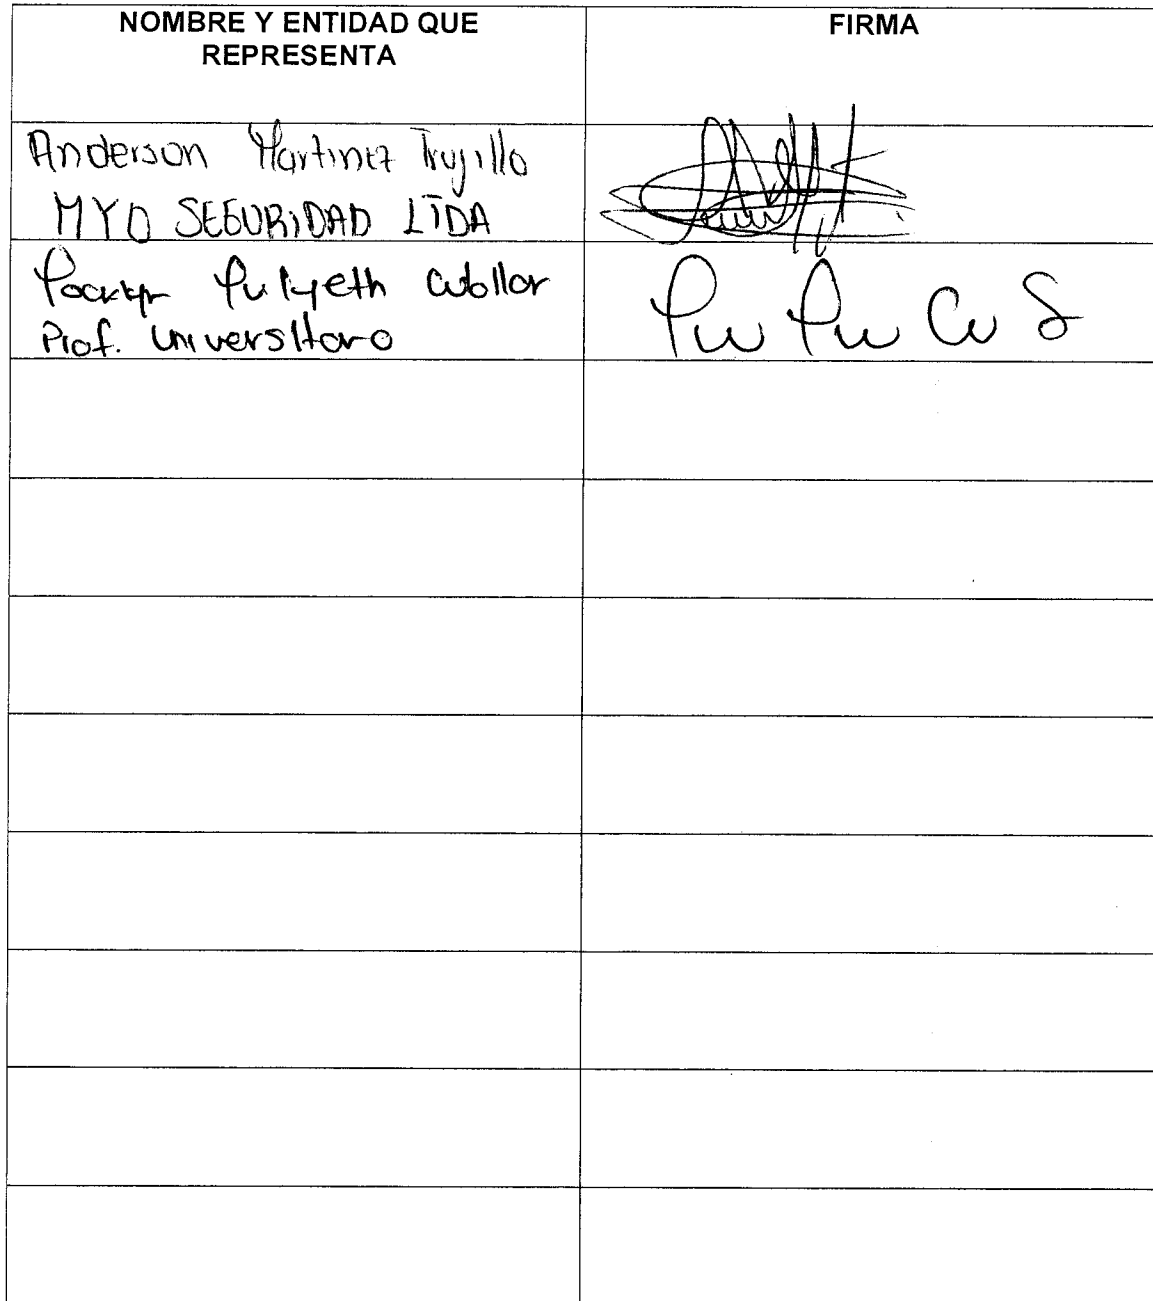 NOMBRE Y ENTIDAD QUE
REPRESENTA
FIRMA
Anderson Martinez Trujillo
MYD SEGURIDAD LTDA
Yulyeth Cubllar
Prof. Universitaro